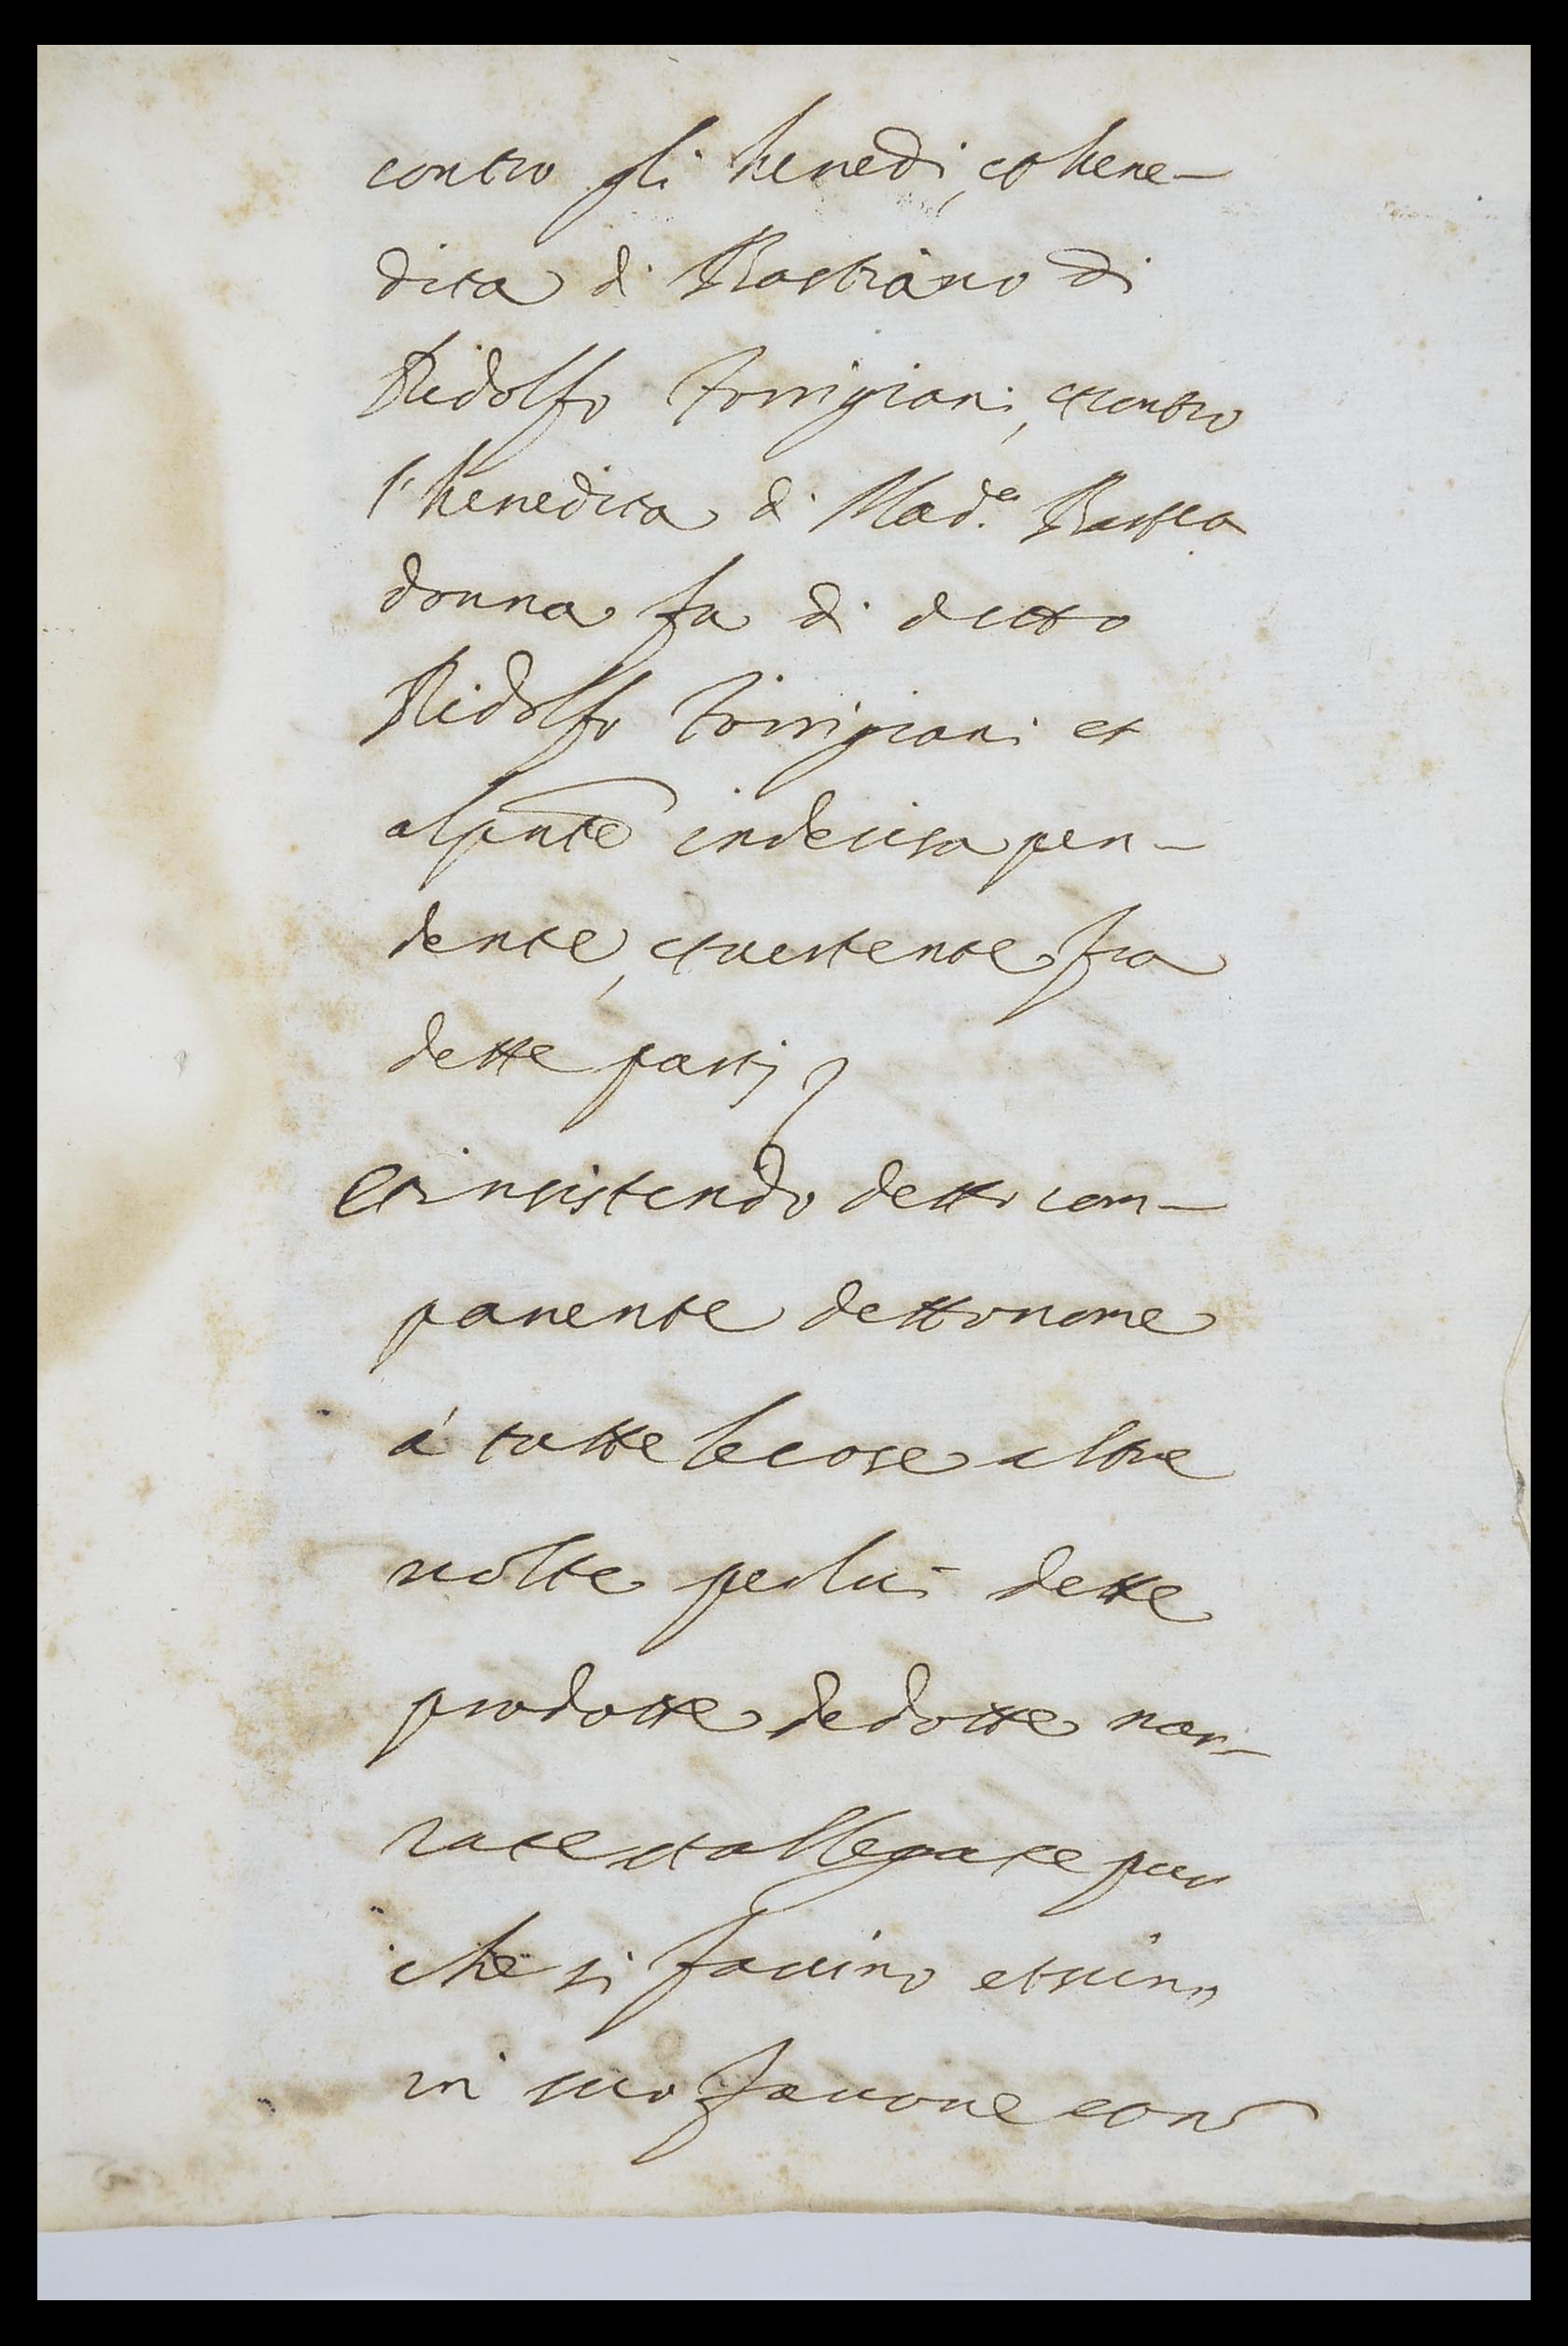 contro gli heredi, et here-
dita di Bastiano di
Ridolfo Torrigiani, et contro
l'heredita di Mad.ª
donna fu di detto
Ridolfo Torrigiani et
alpnte indecisa pen-
dente, et vertente fra
dette parti
Et insistendo detto com-
parente detto nome
á tutte le cose altre
volte per lui dette
prodotte dedotte nar-
rate et allegate pur
che si faccino et siino
in suo favore con